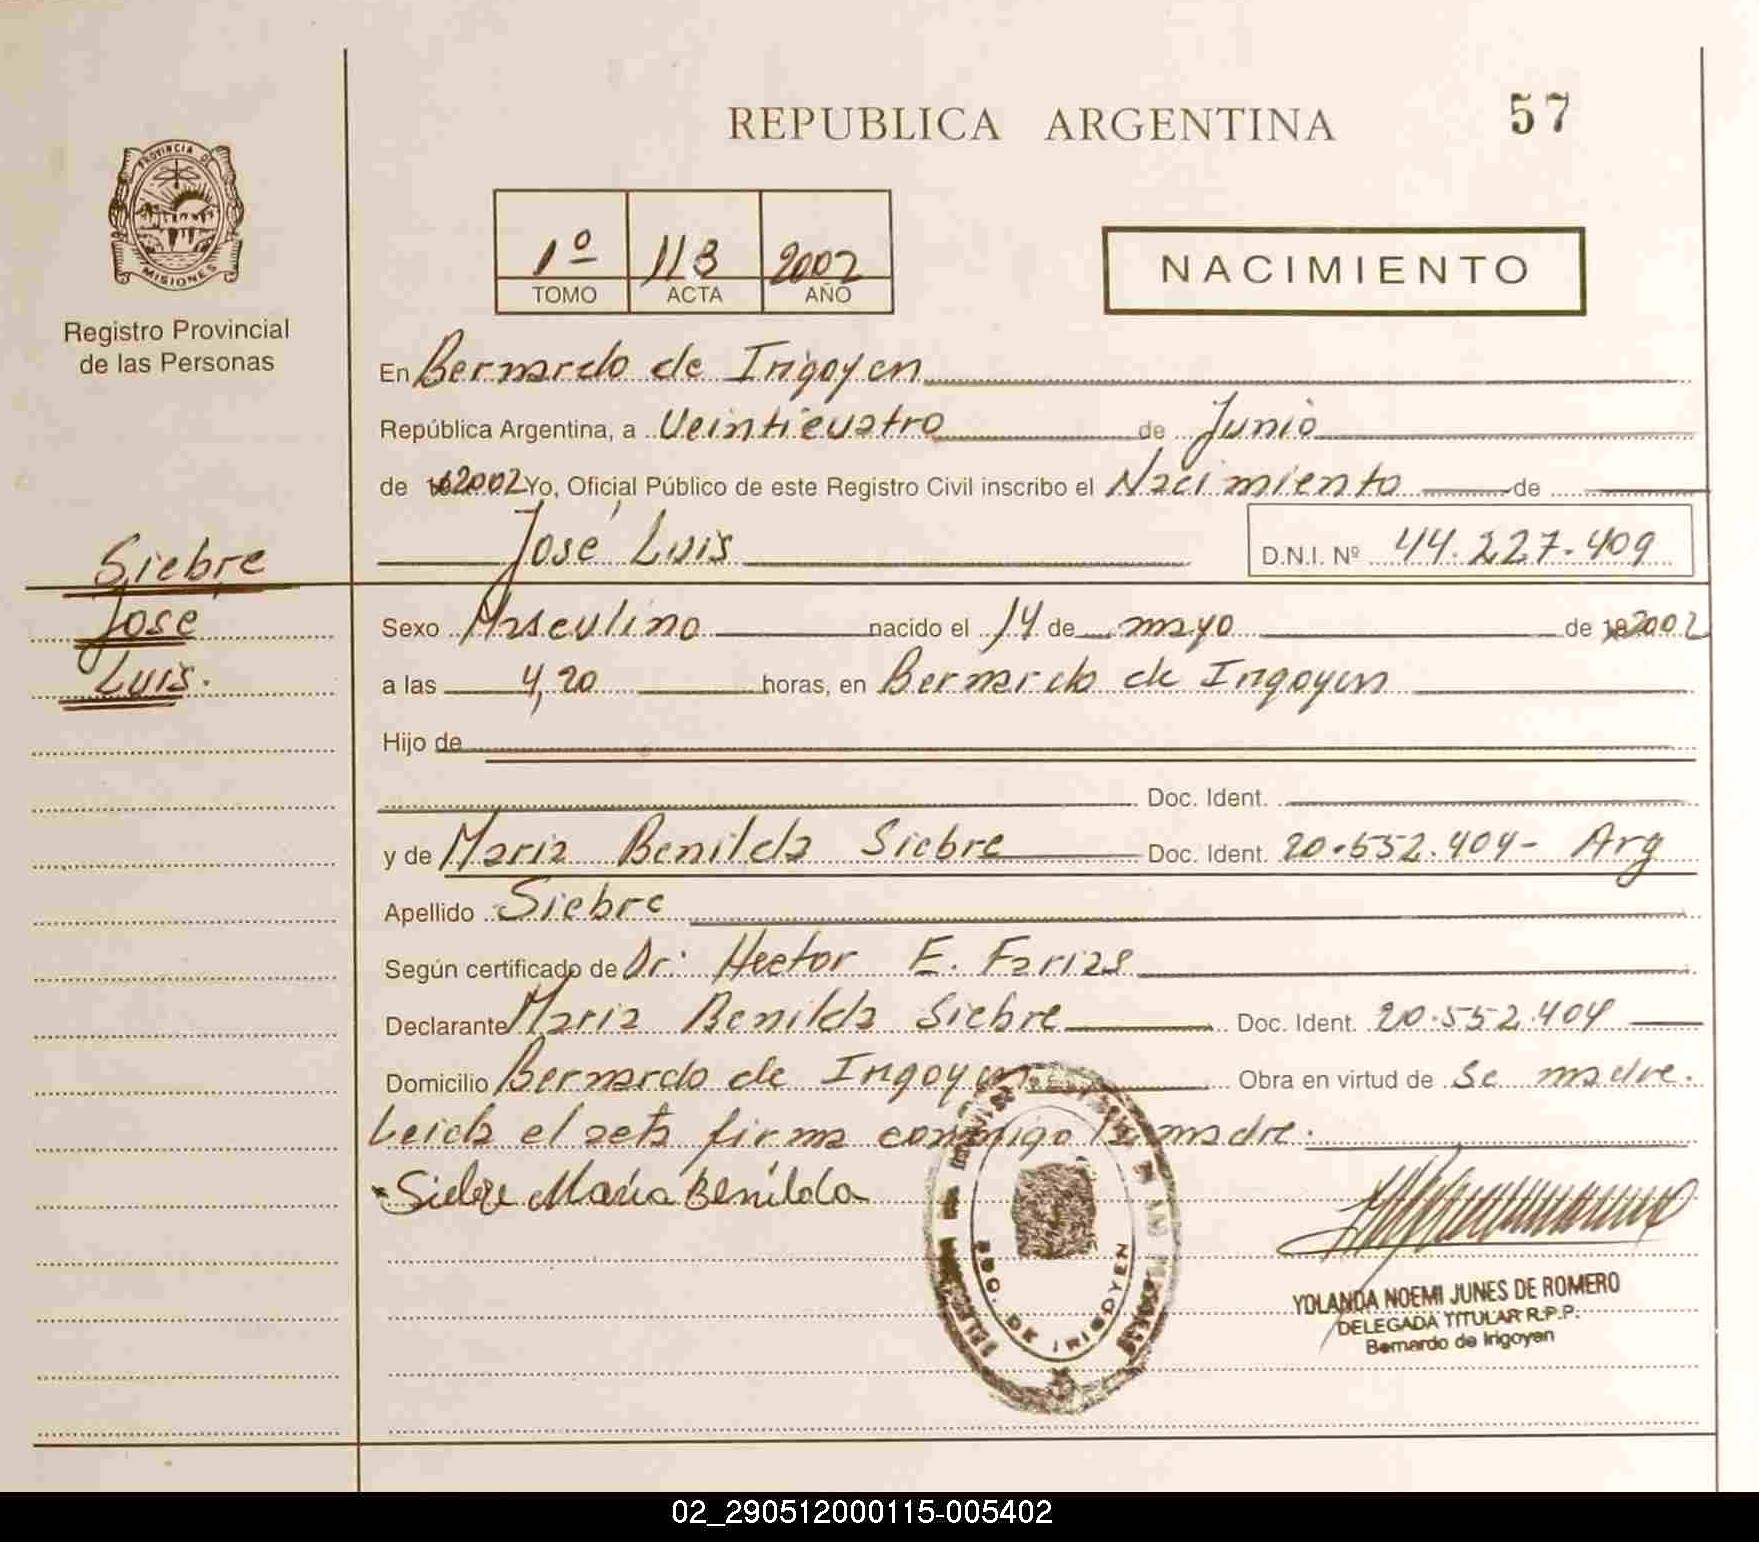 REPUBLICA ARGENTINA
57
PROVINCIA DE
MISIONES
Registro Provincial
de las Personas
1º 113 2002
TOMO ACTA AÑO
NACIMIENTO
En Bernardo de Irigoyen
República Argentina, a Veinticuatro de Junio
de 2002 Yo, Oficial Público de este Registro Civil inscribo el Nacimiento de
José Luis
D.N.I. Nº 44.227.409
Siebre
José
Luis.
Sexo Masculino nacido el 14 de mayo de 2002
a las 4,20 horas, en Bernardo de Irigoyen
Hijo de
Doc. Ident.
y de Maria Benilda Siebre Doc. Ident. 20.552.404- Arg
Apellido Siebre
Según certificado de Dr. Hector E. Farias
Declarante Maria Benilda Siebre Doc. Ident. 20.552.404
Domicilio Bernardo de Irigoyen Obra en virtud de Se madre.
Leida el acta firma conmigo la madre.
Siebre Maria Benilda
BDO. DE IRIGOYEN
YOLANDA NOEMI JUNES DE ROMERO
DELEGADA TITULAR R.P.P.
Bernardo de Irigoyen
02_290512000115-005402